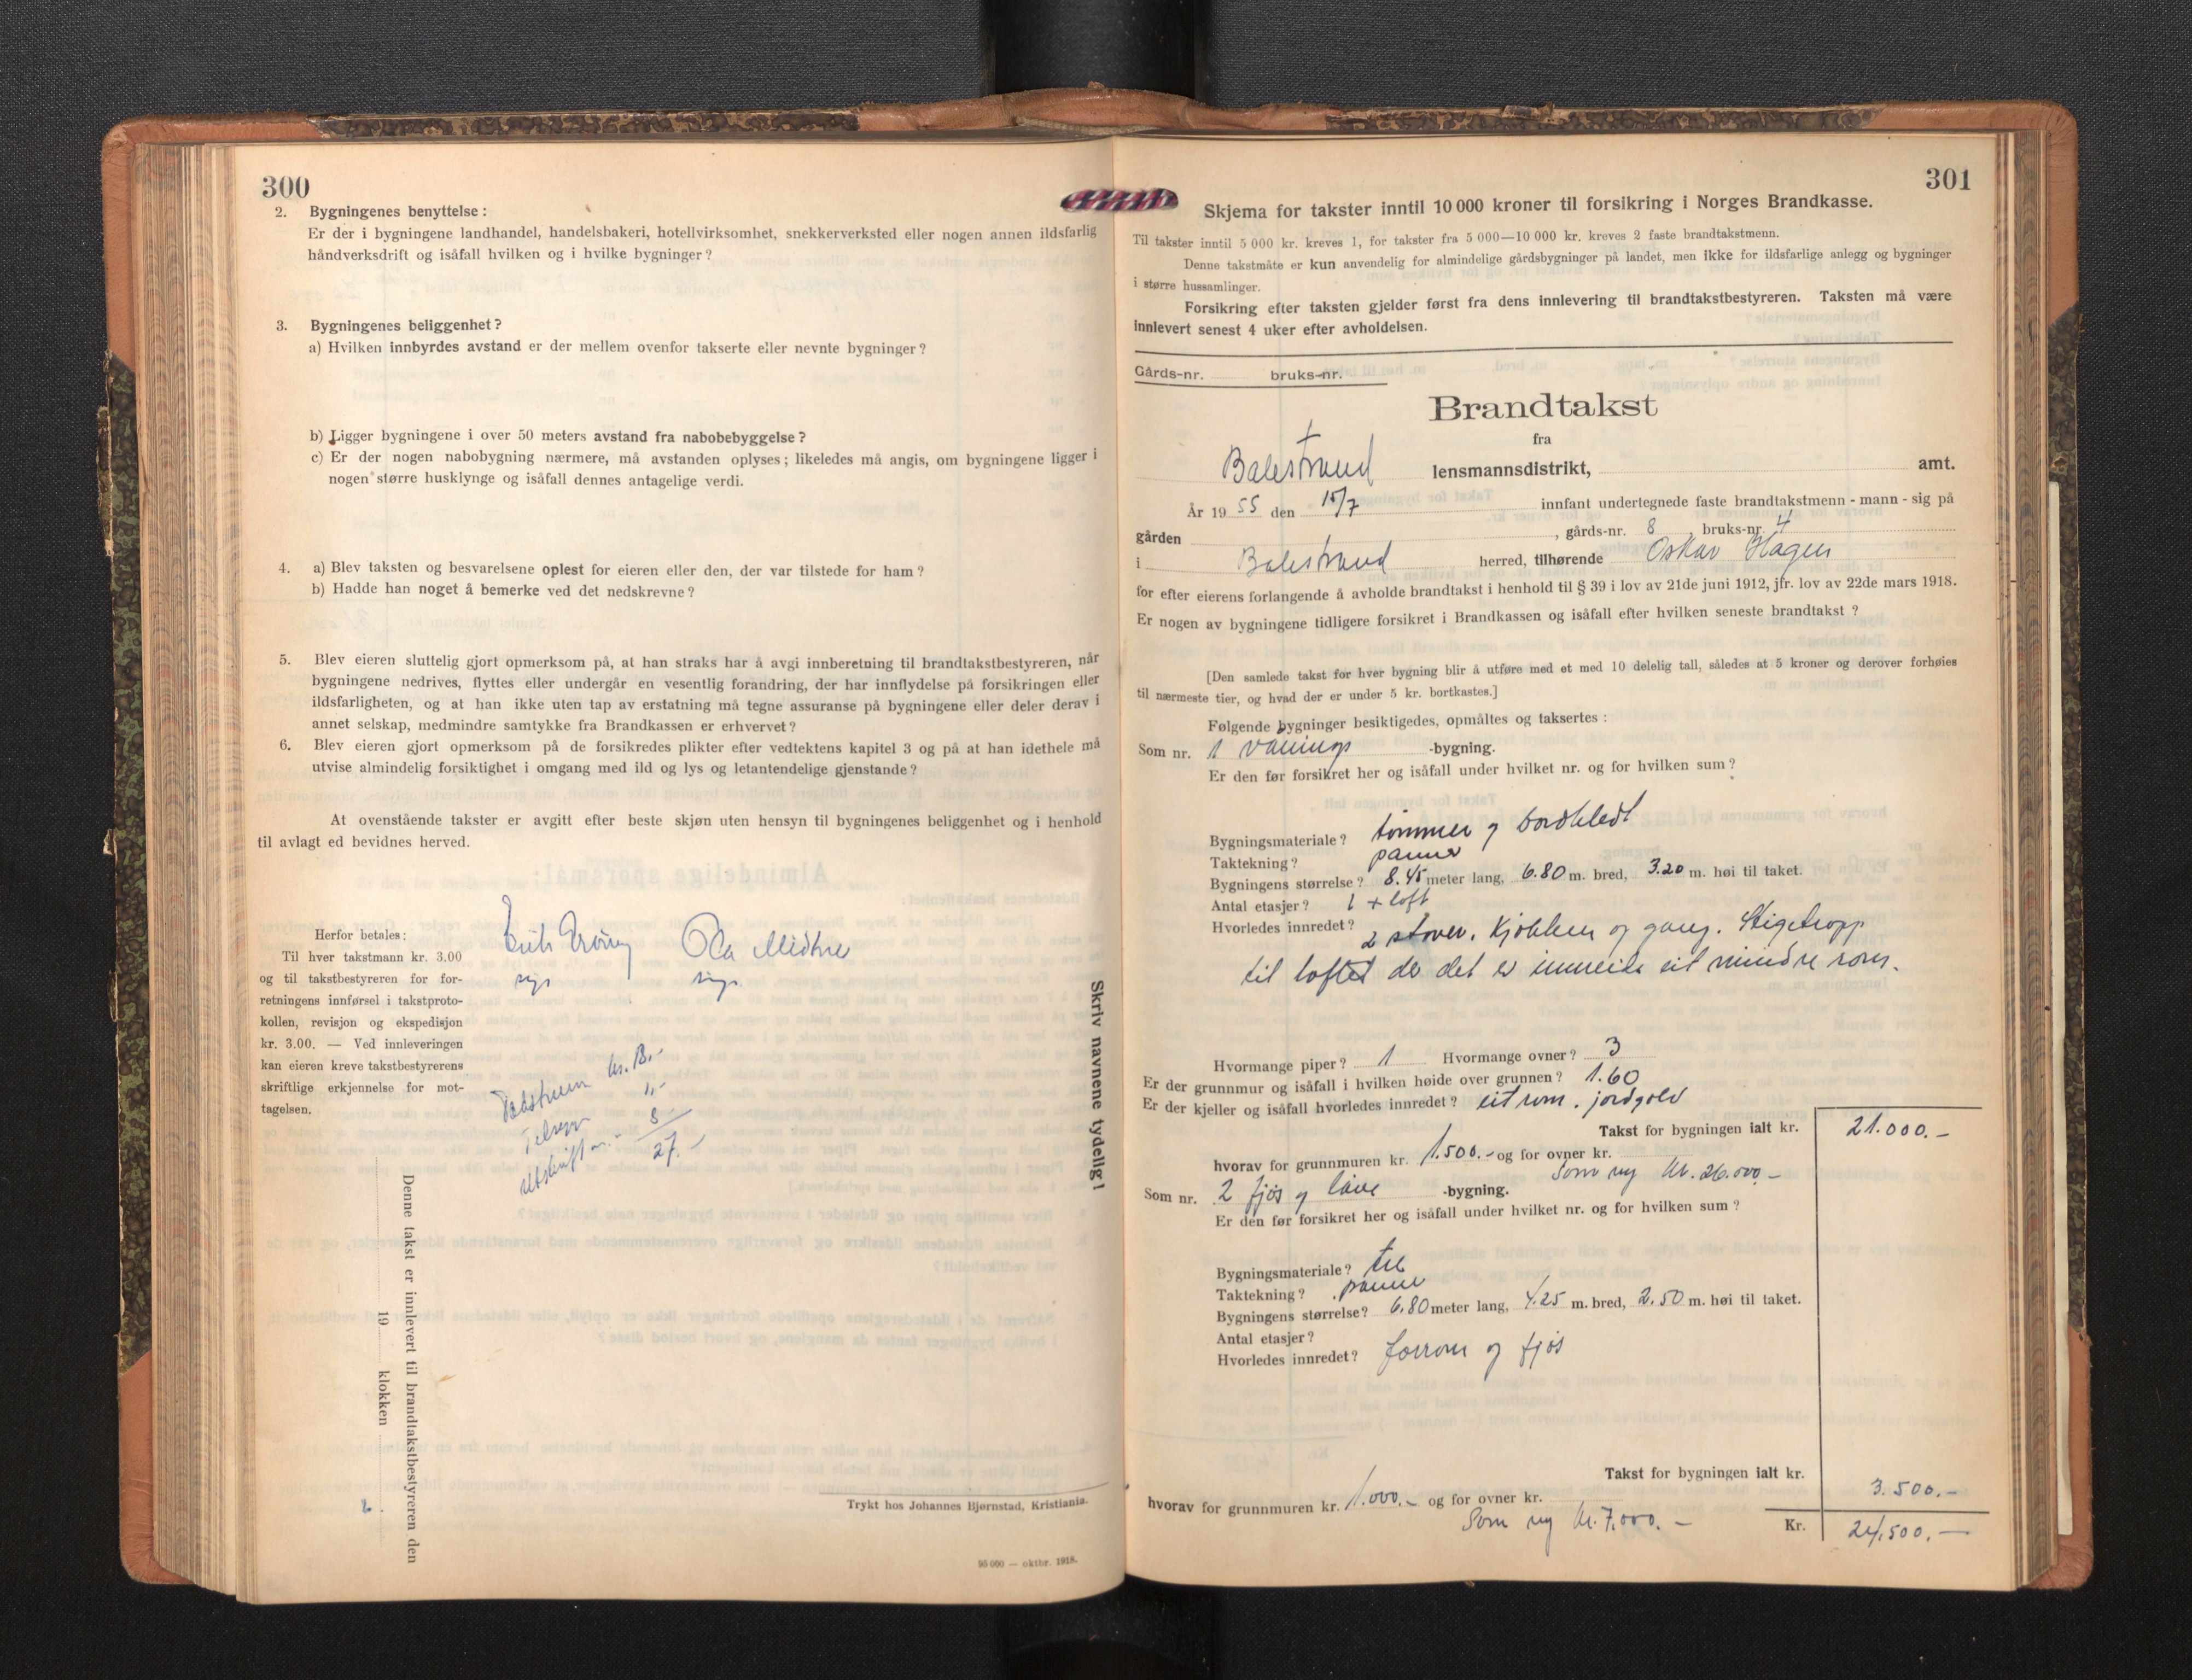 300
2. Bygningenes benyttelse:
Er der i bygningene landhandel, handelsbakeri, hotellvirksomhet, snekkerverksted eller nogen annen ildsfarlig
håndverksdrift og isåfall hvilken og i hvilke bygninger?
3. Bygningenes beliggenhet?
a) Hvilken innbyrdes avstand er der mellem ovenfor takserte eller nevnte bygninger?
b) Ligger bygningene i over 50 meters avstand fra nabobebyggelse?
c) Er der nogen nabobygning nærmere, må avstanden oplyses; likeledes må angis, om bygningene ligger i
nogen større husklynge og isåfall dennes antagelige verdi.
4. a) Blev taksten og besvarelsene oplest for eieren eller den, der var tilstede for ham?
b) Hadde han noget å bemerke ved det nedskrevne?
5. Blev eieren sluttelig gjort opmerksom på, at han straks har å avgi innberetning til brandtakstbestyreren, når
bygningene nedrives, flyttes eller undergår en vesentlig forandring, der har innflydelse på forsikringen eller
ildsfarligheten, og at han ikke uten tap av erstatning må tegne assuranse på bygningene eller deler derav i
annet selskap, medmindre samtykke fra Brandkassen er erhvervet?
6. Blev eieren gjort opmerksom på de forsikredes plikter efter vedtektens kapitel 3 og på at han idethele må
utvise almindelig forsiktighet i omgang med ild og lys og letantendelige gjenstande?
At ovenstående takster er avgitt efter beste skjøn uten hensyn til bygningenes beliggenhet og i henhold
til avlagt ed bevidnes herved.
Herfor betales:
Til hver takstmann kr. 3.00
og til takstbestyreren for for-
retningens innførsel i takstproto-
kollen, revisjon og ekspedisjon
kr. 3.00. — Ved innleveringen
kan eieren kreve takstbestyrerens
skriftlige erkjennelse for mot-
tagelsen.
Ola
sign sign
8
27.-
Skriv navnene tydelig!
Denne takst er innlevert til brandtakstbestyreren den
19 klokken
Trykt hos Johannes Bjørnstad, Kristiania.
95 000 — oktbr. 1918.
301
Skjema for takster inntil 10 000 kroner til forsikring i Norges Brandkasse.
Til takster inntil 5 000 kr. kreves 1, for takster fra 5 000—10 000 kr. kreves 2 faste brandtakstmenn.
Denne takstmåte er kun anvendelig for almindelige gårdsbygninger på landet, men ikke for ildsfarlige anlegg og bygninger
i større hussamlinger.
Forsikring efter taksten gjelder først fra dens innlevering til brandtakstbestyreren. Taksten må være
innlevert senest 4 uker efter avholdelsen.
Gårds-nr. bruks-nr.
Brandtakst
fra
Balestrand lensmannsdistrikt, amt.
År 1955 den 15/7 innfant undertegnede faste brandtakstmenn - mann - sig på
gården , gårds-nr. 8 bruks-nr. 4
i Balestrand herred, tilhørende Oskar Hagen
for efter eierens forlangende å avholde brandtakst i henhold til § 39 i lov av 21de juni 1912, jfr. lov av 22de mars 1918.
Er nogen av bygningene tidligere forsikret i Brandkassen og isåfall efter hvilken seneste brandtakst?
[Den samlede takst for hver bygning blir å utføre med et med 10 delelig tall, således at 5 kroner og derover forhøies
til nærmeste tier, og hvad der er under 5 kr. bortkastes.]
Følgende bygninger besiktigedes, opmåltes og taksertes:
Som nr. 1 vånings -bygning.
Er den før forsikret her og isåfall under hvilket nr. og for hvilken sum?
Bygningsmateriale? tømmer og bordkledt
Taktekning? panner
Bygningens størrelse? 8.45 meter lang, 6.80 m. bred, 3.20 m. høi til taket.
Antal etasjer? 1 + loft
Hvorledes innredet? 2 stover. Kjøkken og gang. Stigetropp
til loftet der det er innreida eit mindre rom.
Hvormange piper? 1 Hvormange ovner? 3
Er der grunnmur og isåfall i hvilken høide over grunnen? 1.60
Er der kjeller og isåfall hvorledes innredet? eit rom. jordgolv
Takst for bygningen ialt kr. 21.000.-
hvorav for grunnmuren kr. 1.500.- og for ovner kr.
Som ny kr. 26.000.-
Som nr. 2 fjøs og løve -bygning.
Er den før forsikret her og isåfall under hvilket nr. og for hvilken sum?
Bygningsmateriale? tre
Taktekning? panner
Bygningens størrelse? 6.80 meter lang, 4.25 m. bred, 2.50 m. høi til taket.
Antal etasjer?
Hvorledes innredet? forrom og fjøs
Takst for bygningen ialt kr. 3.500.-
hvorav for grunnmuren kr. 1.000.- og for ovner kr.
Som ny kr. 7.000.-
Kr. 24.500.-